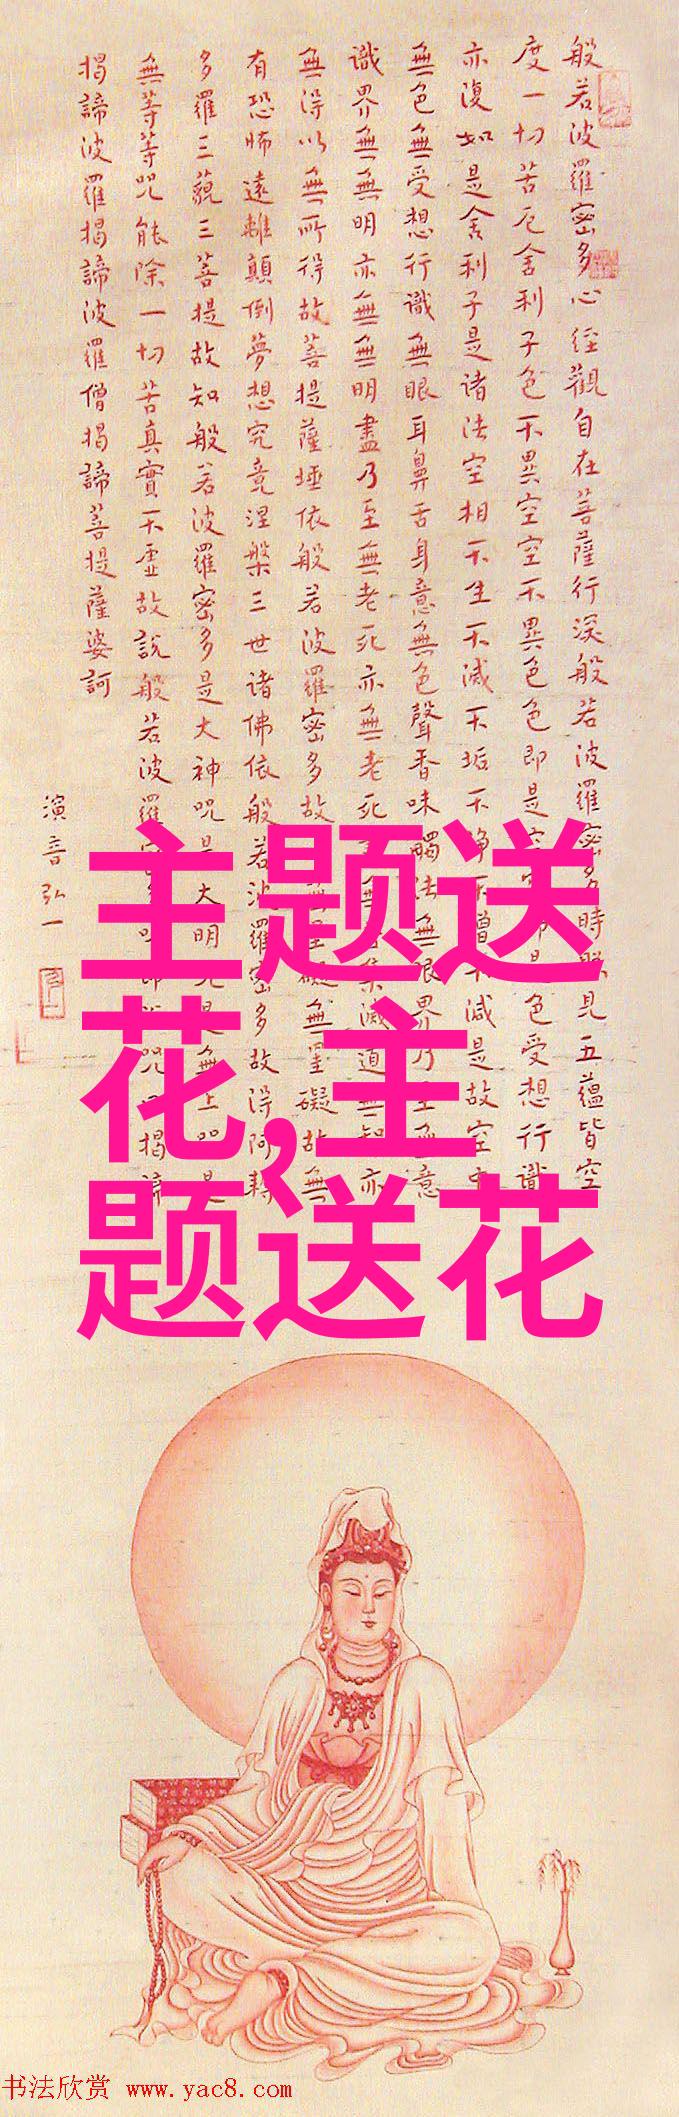 般若波羅密多心経觀自在菩薩行深般若波羅密多時照見五蘊皆空
度一切苦厄舍利子色不異空空不異色色即是空空即是色受想行識
亦復如是舍利子是诸法空相不生不滅不垢不净不增不減是故空中
無色無受想行識無眼耳鼻舌身意無色聲香味觸法無眼界乃至無意
識界無無明亦無無明盡乃至無老死亦無老死盡無苦集滅道無知亦
無得以無所得故菩提薩埵依般若波羅密多故無罣礙無罣礙故無
有恐怖遠離顛倒夢想究竟涅槃三世诸佛依般若波羅密多故得阿耨
多羅三藐三菩提故知般若波羅密多是大神咒是大明咒是無上咒是
無等等咒能除一切苦真實不虚故說般若波羅密多咒即說咒曰揭諦
揭諦波羅揭諦波羅僧揭諦菩提薩婆訶
演音弘一
主题送
花,主
题送花
书法欣赏 www.yac8.com